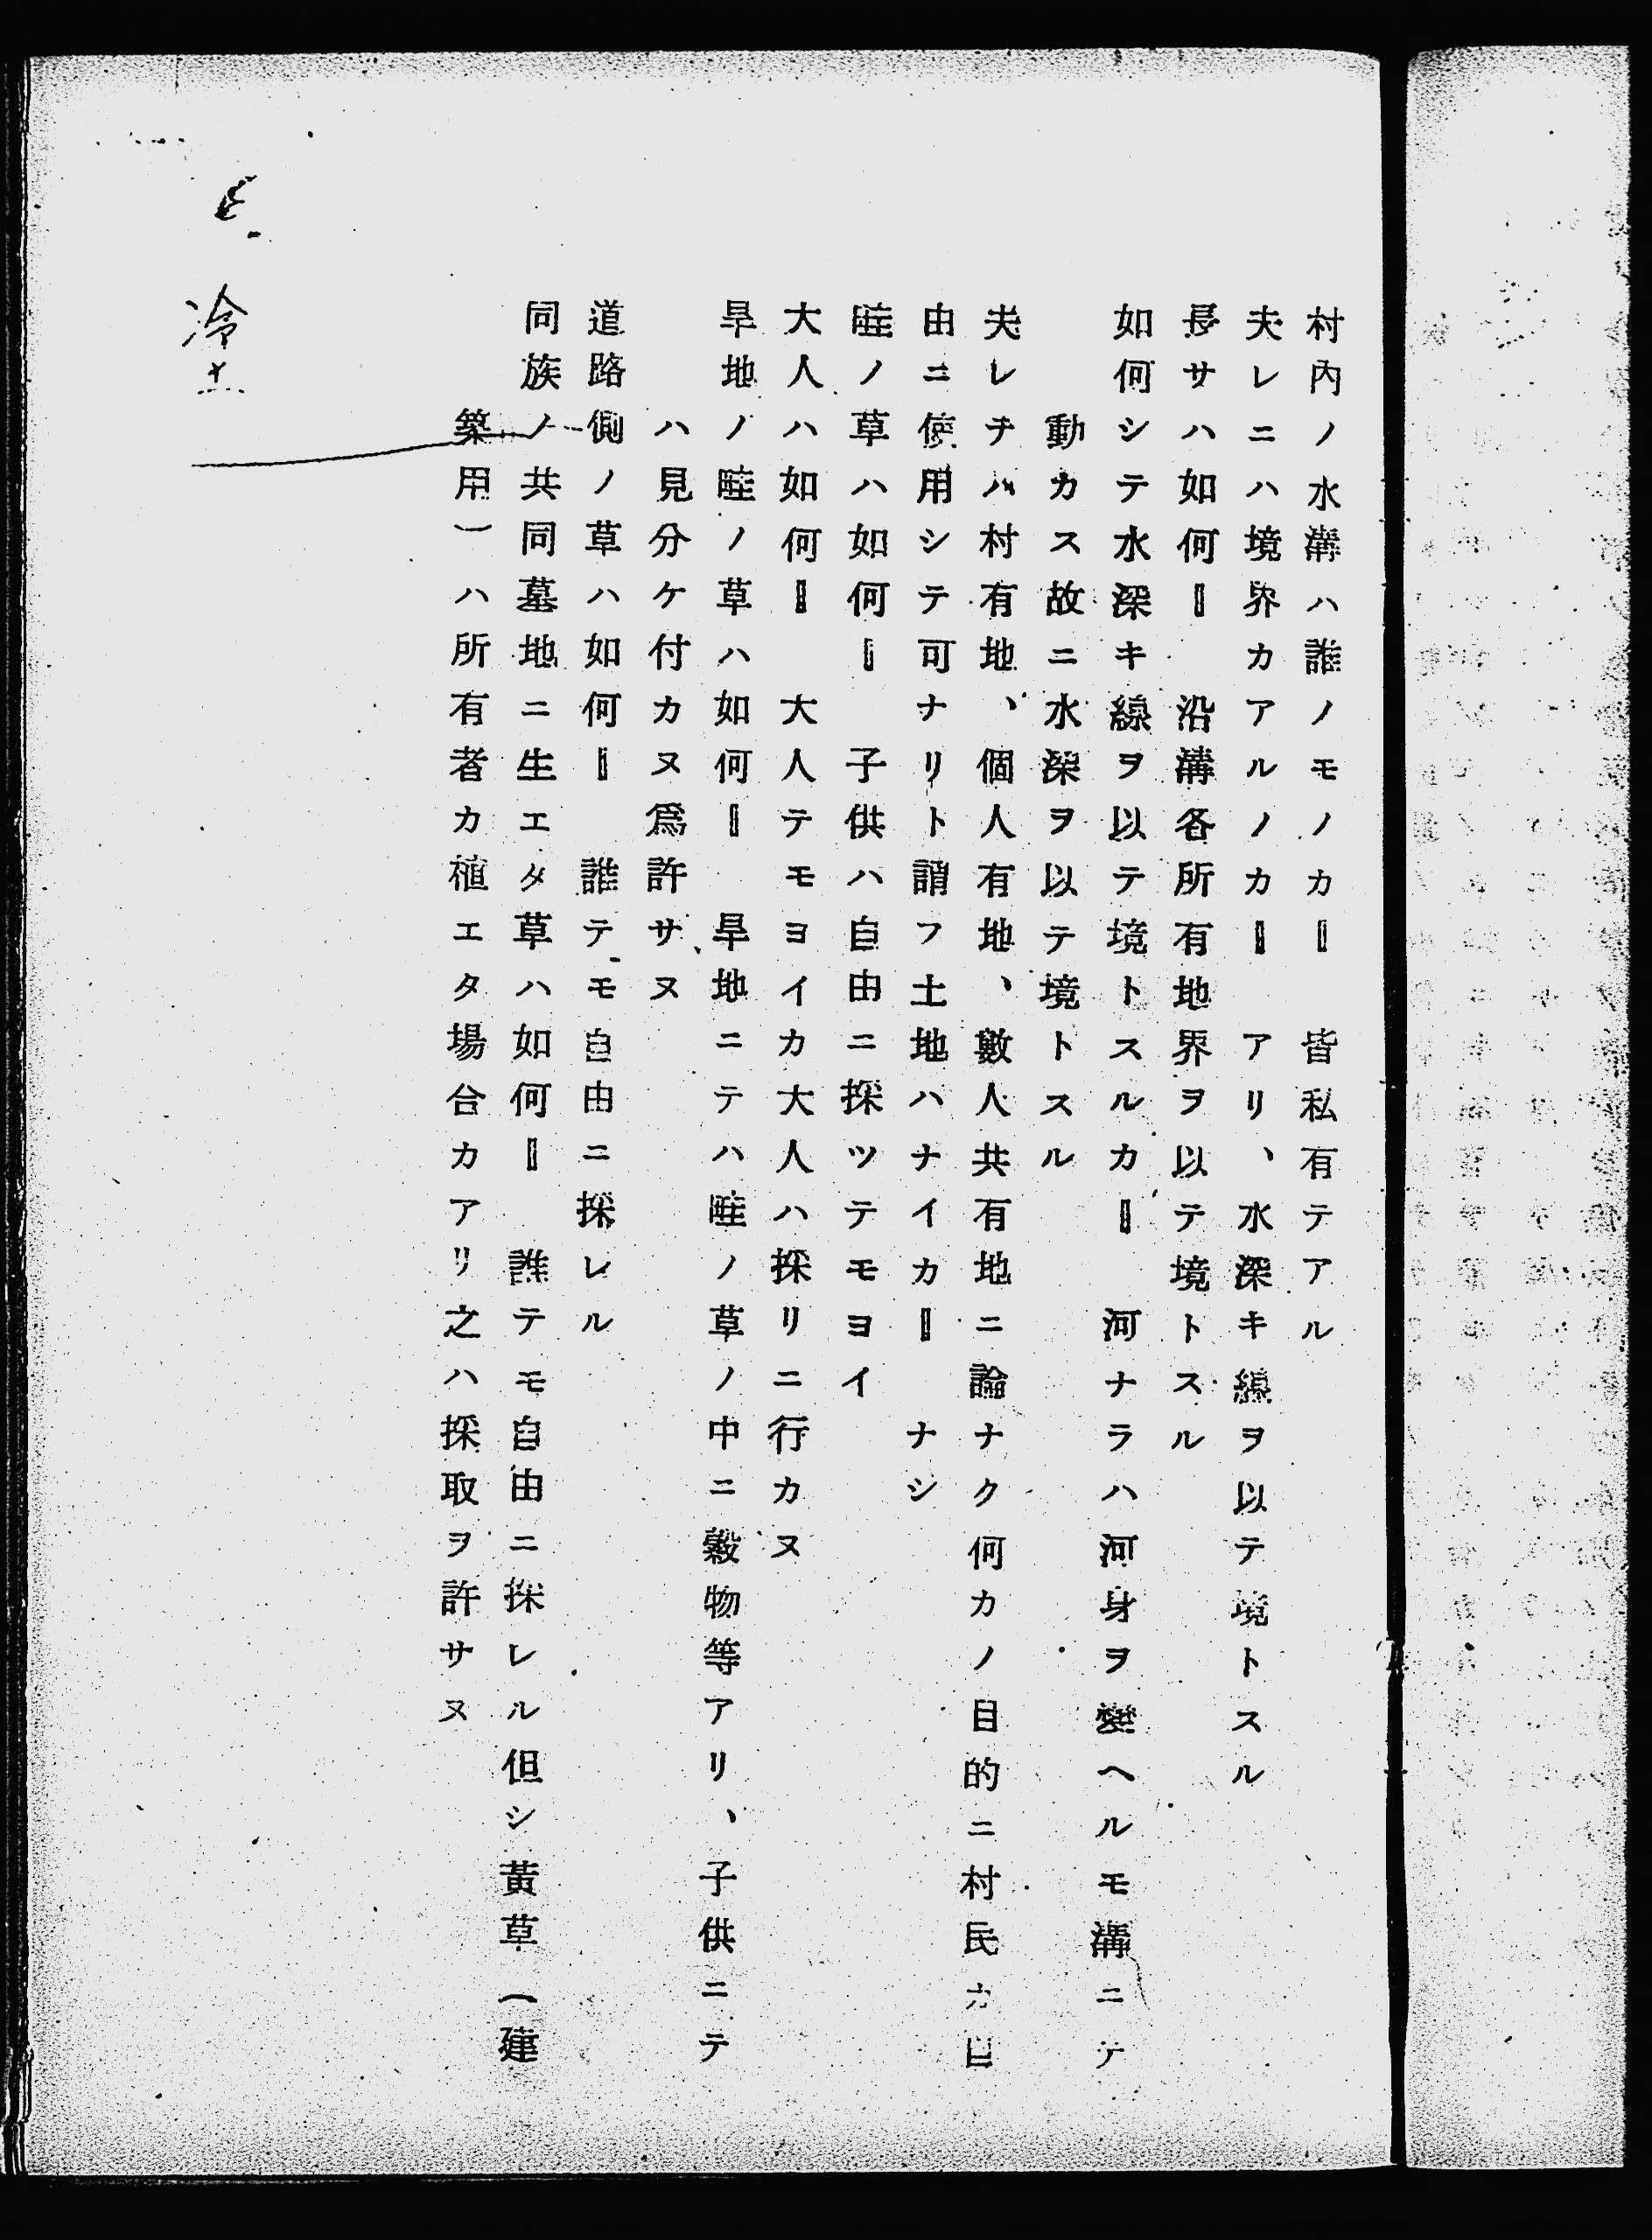 村內ノ水溝ハ誰ノモノカ‖　皆私有テアル
夫レニハ境界カアルノカ‖　アリ、水深キ線ヲ以テ境トスル
長サハ如何‖　沿溝各所有地界ヲ以テ境トスル
如何シテ水深キ線ヲ以テ境トスルカ‖　河ナラハ河身ヲ變ヘルモ溝ニテ
動カス故ニ水深ヲ以テ境トスル
夫レテハ村有地、個人有地、數人共有地ニ論ナク何カノ目的ニ村民カ自
由ニ使用シテ可ナリト謂フ土地ハナイカ‖　ナシ
畦ノ草ハ如何‖　子供ハ自由ニ採ツテモヨイ
大人ハ如何‖　大人テモヨイカ大人ハ採リニ行カヌ
旱地ノ畦ノ草ハ如何‖　旱地ニテハ畦ノ草ノ中ニ穀物等アリ、子供ニテ
ハ見分ケ付カヌ爲許サヌ
道路側ノ草ハ如何‖　誰テモ自由ニ採レル
同族ノ共同墓地ニ生エタ草ハ如何‖　誰テモ自由ニ採レル但シ黃草（建
築用）ハ所有者カ植エタ場合カアリ之ハ採取ヲ許サヌ